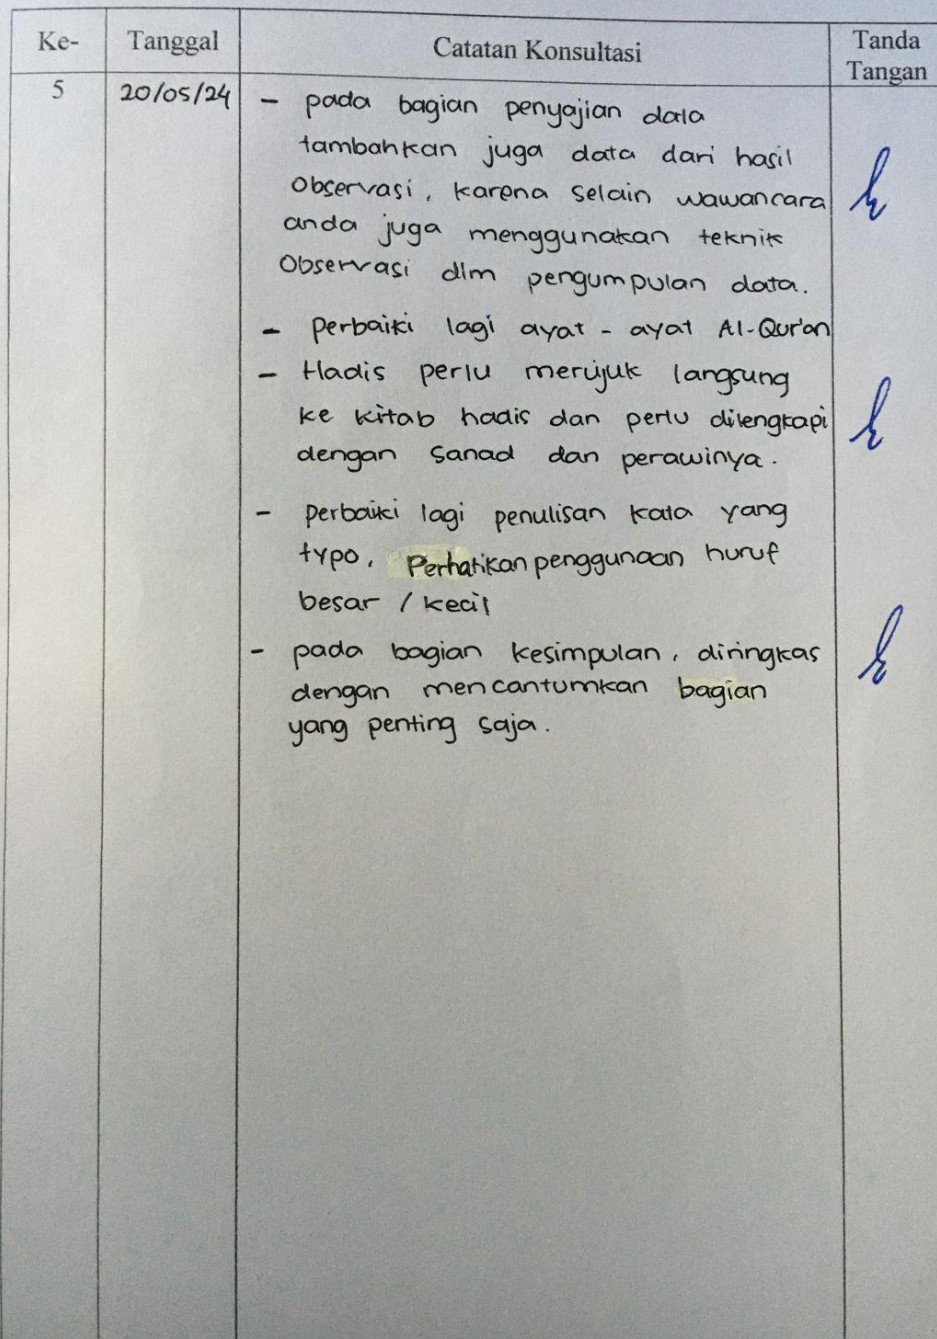 Ke- Tanggal Catatan Konsultasi Tanda Tangan
5 20/05/24 - pada bagian penyajian data
tambahkan juga data dari hasil
Observasi, karena selain wawancara
anda juga menggunakan teknik
Observasi dlm pengumpulan data.
- perbaiki lagi ayat - ayat Al-Qur'an
- Hadis perlu merujuk langsung
ke kitab hadis dan perlu dilengkapi
dengan sanad dan perawinya.
- perbaiki lagi penulisan kata yang
typo, Perhatikan penggunaan huruf
besar / kecil
- pada bagian kesimpulan, diringkas
dengan mencantumkan bagian
yang penting saja.